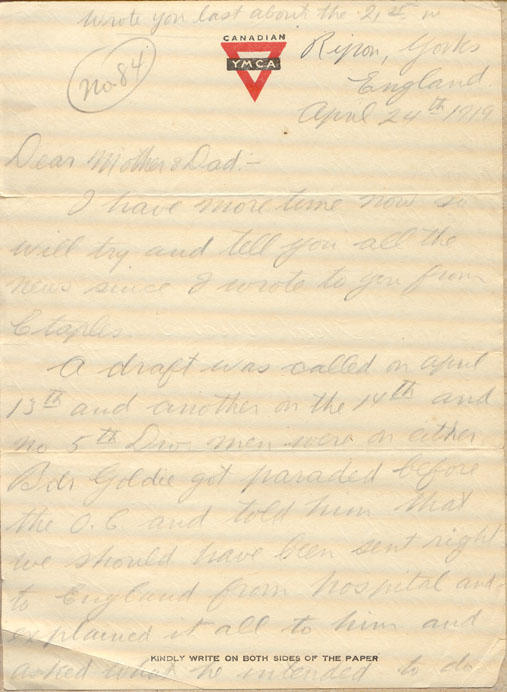 wrote you last about the 21st
CANADIAN
YMCA
No. 84
Ripon, Yorks
England.
April 24th 1919
Dear Mother & Dad:-
I have more time now so
will try and tell you all the
news since I wrote to you from
Etaples.
A draft was called on April
13th and another on the 14th and
no 5th Div. men were on either
Bdr Goldie got paraded before
the O.C. and told him that
we should have been sent right
to England from hospital and
explained it all to him and
asked what he intended to do
KINDLY WRITE ON BOTH SIDES OF THE PAPER